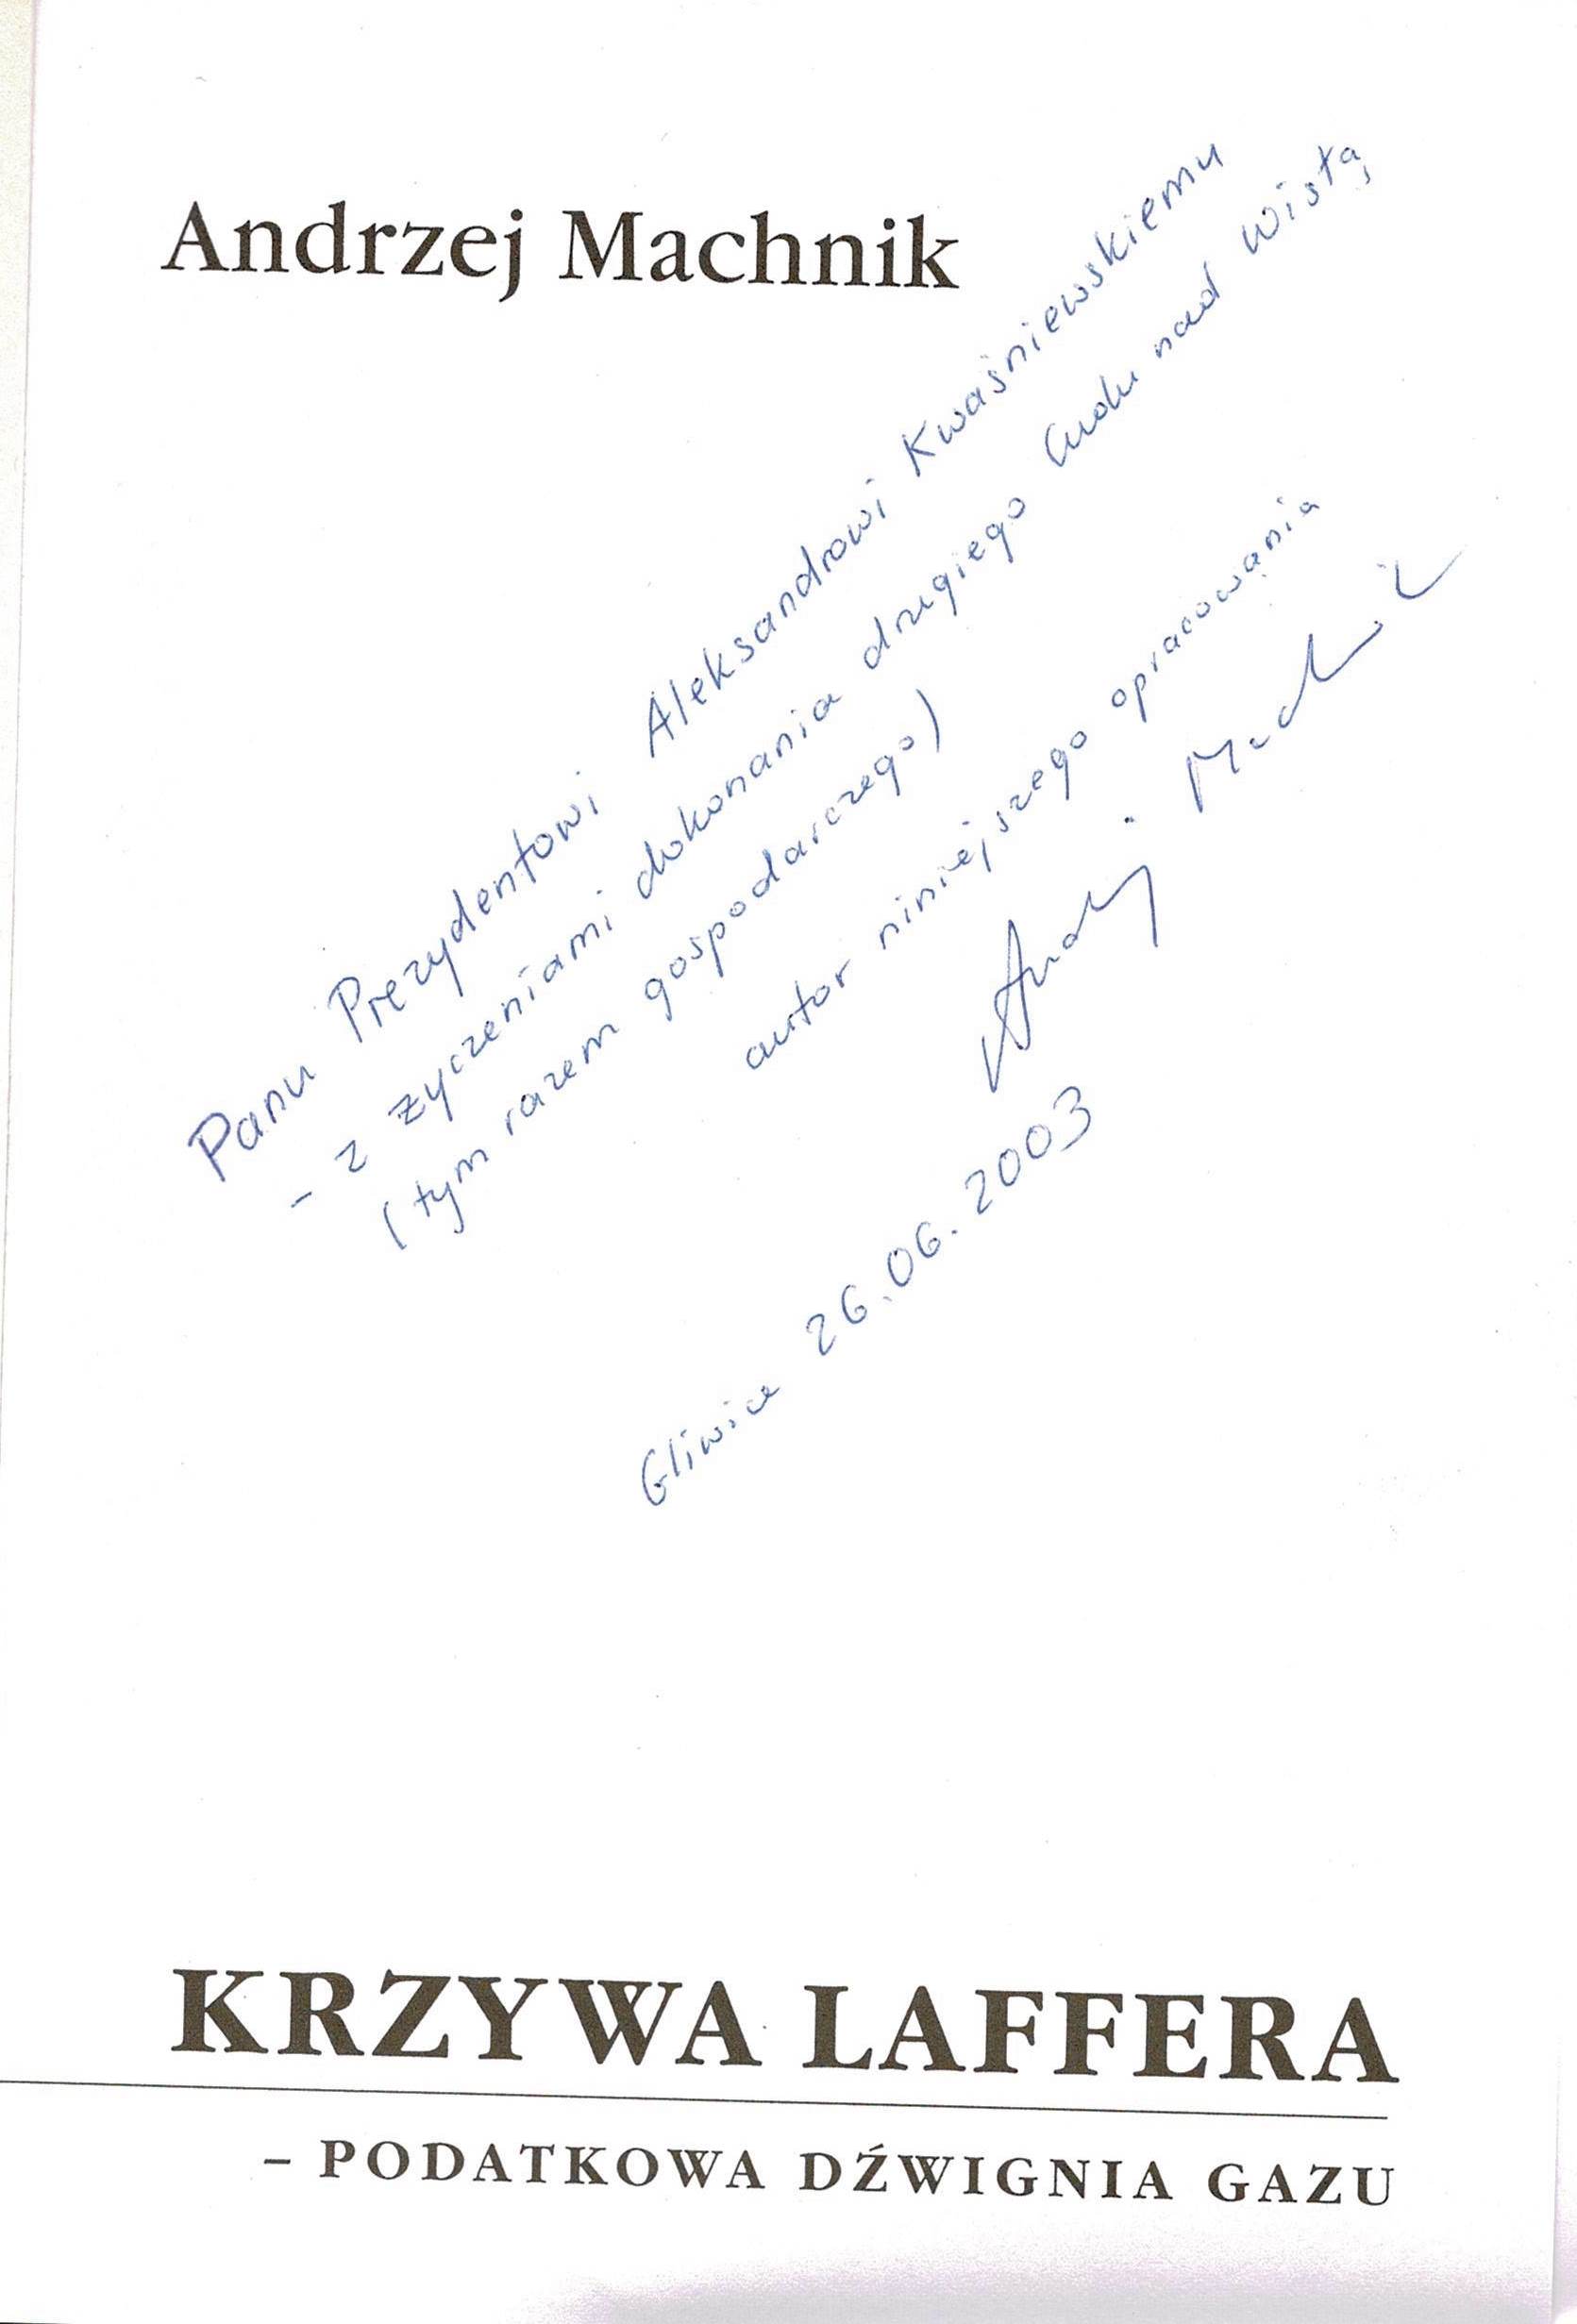 Andrzej Machnik
Panu Prezydentowi Aleksandrowi Kwaśniewskiemu
- z życzeniami dokonania drugiego Cudu nad Wisłą
(tym razem gospodarczego)
autor niniejszego opracowania
Andrzej Machnik
Gliwice 26.06.2003
KRZYWA LAFFERA
– PODATKOWA DŹWIGNIA GAZU